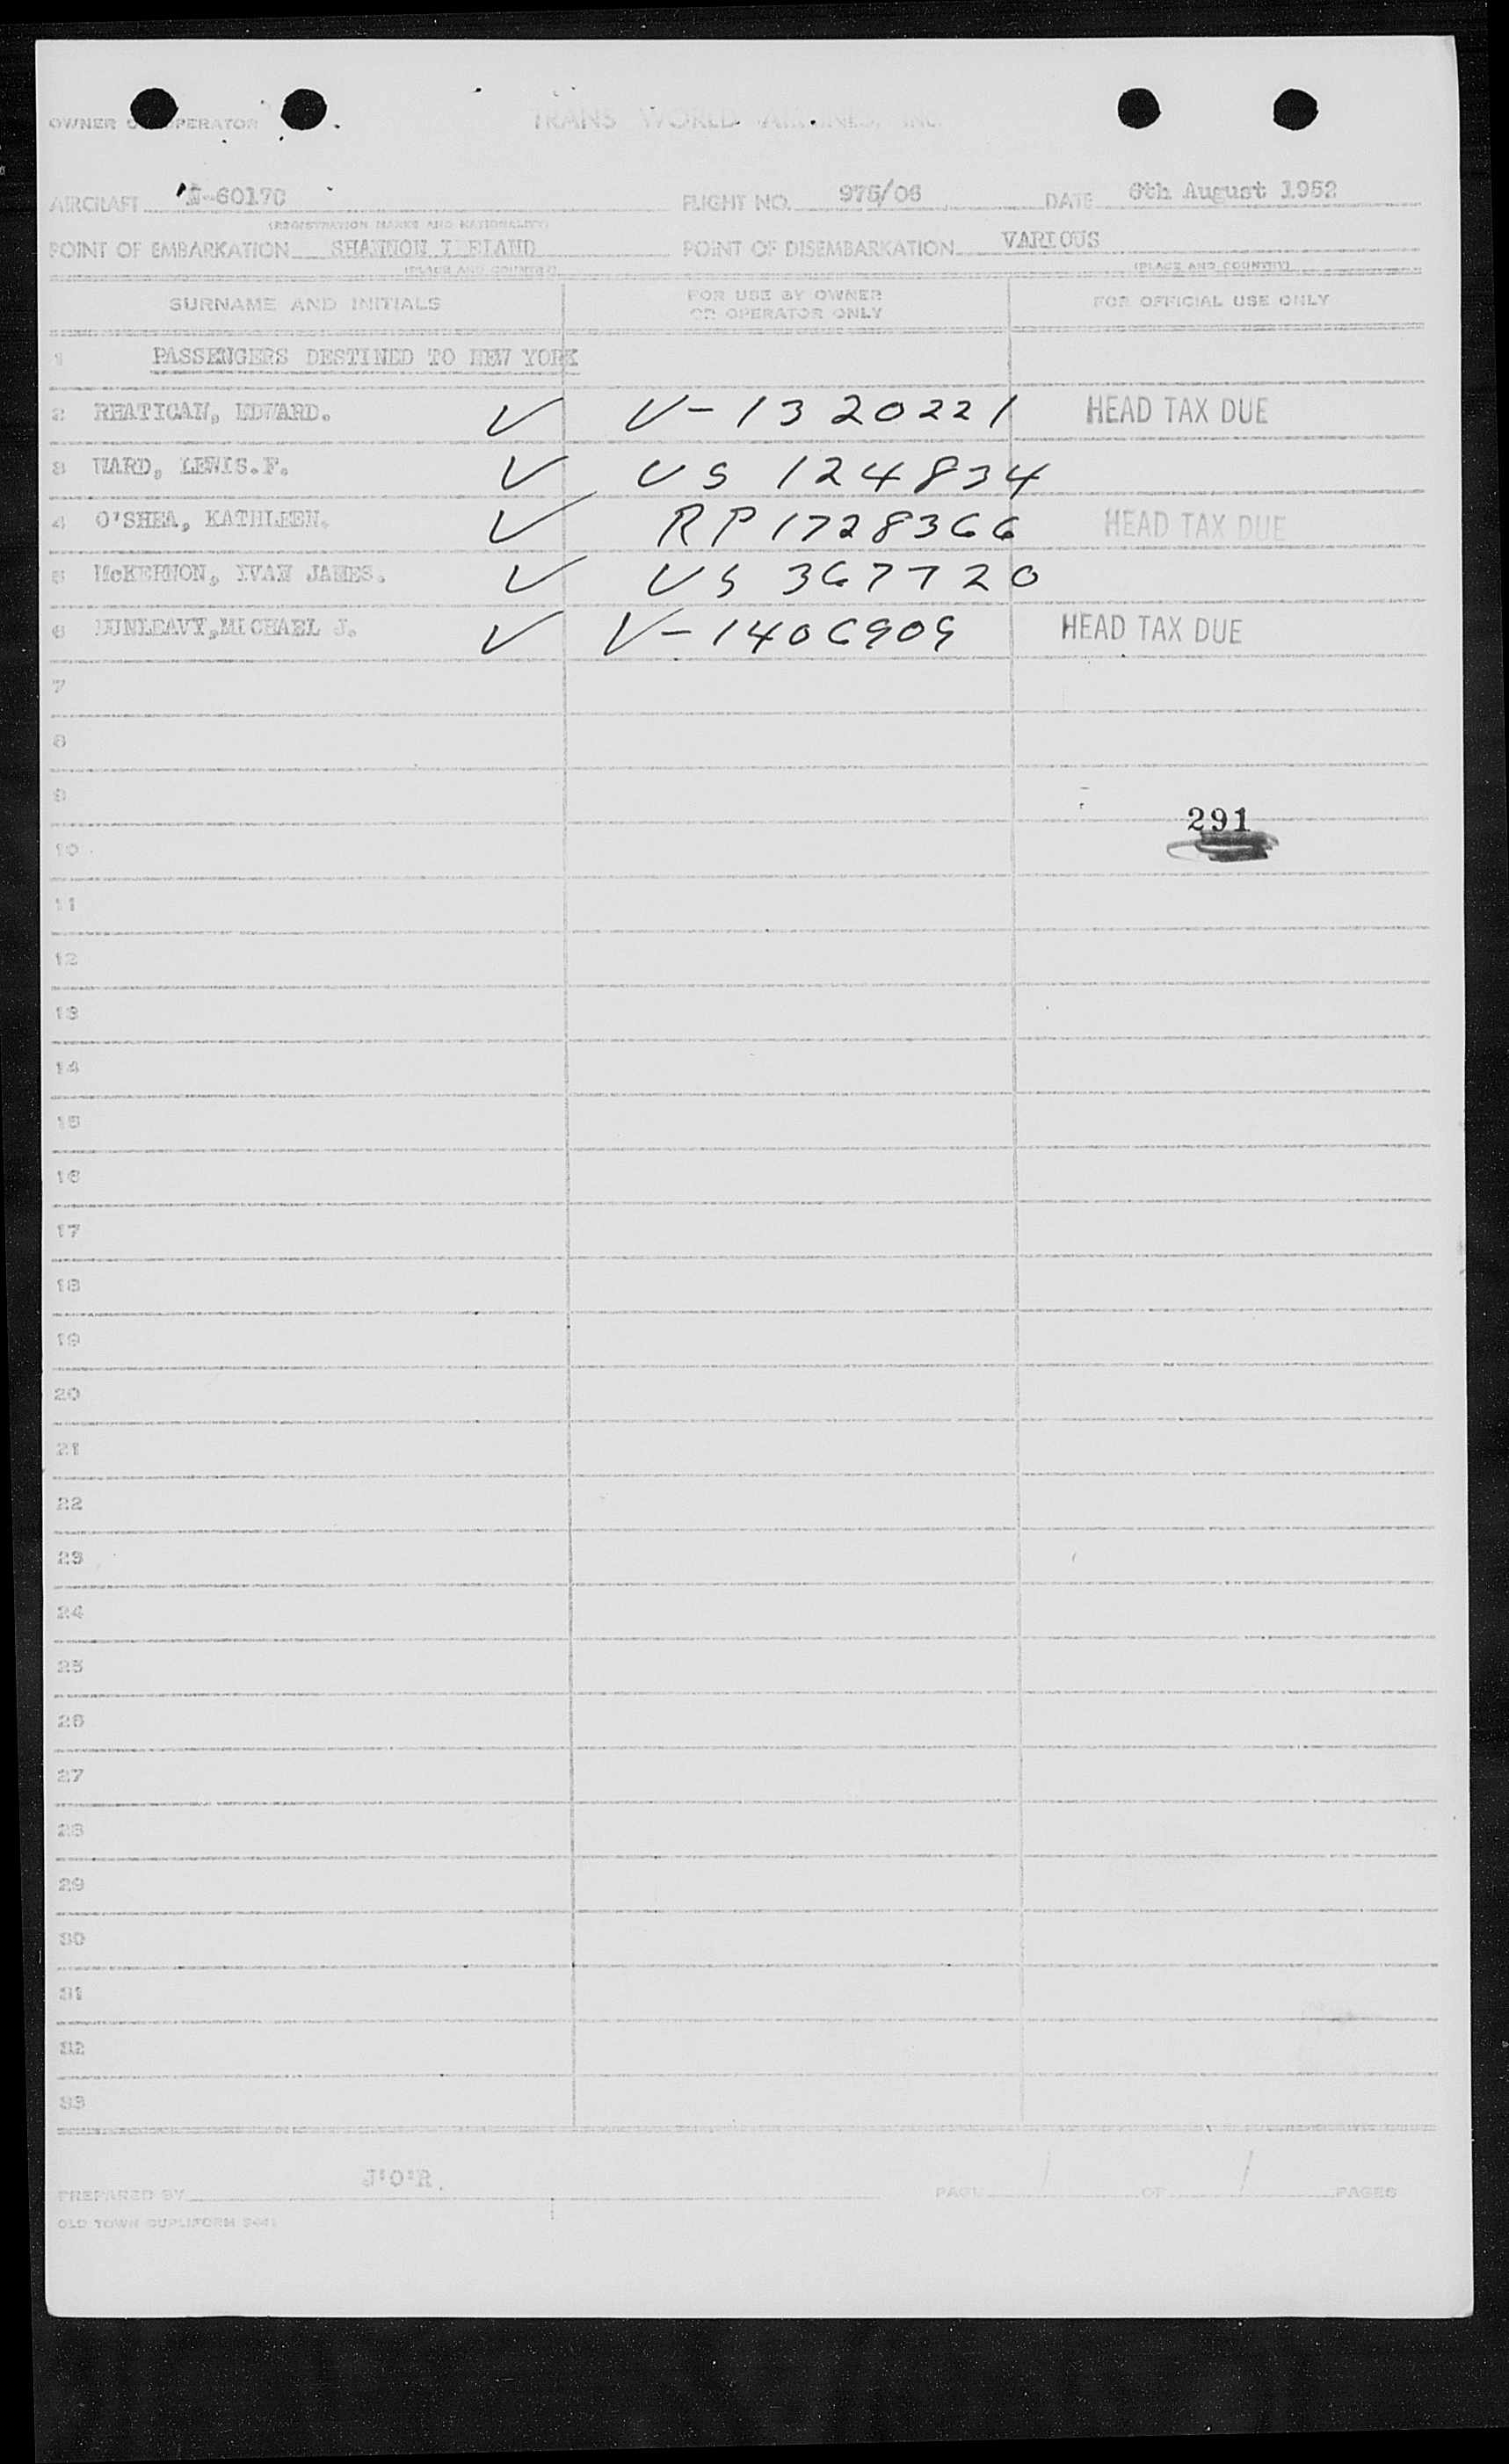 OWNER OR OPERATOR TRANS WORLD AIRLINES, INC.
AIRCRAFT N-6017C FLIGHT NO. 975/06 DATE 6th August 1952
(REGISTRATION MARKS AND NATIONALITY)
POINT OF EMBARKATION SHANNON IRELAND POINT OF DISEMBARKATION VARIOUS
(PLACE AND COUNTRY) (PLACE AND COUNTRY)
SURNAME AND INITIALS FOR USE BY OWNER OR OPERATOR ONLY FOR OFFICIAL USE ONLY
1 PASSENGERS DESTINED TO NEW YORK
2 RHATICAN, EDWARD. ✓ V-1320221 HEAD TAX DUE
3 WARD, LEWIS.F. ✓ US 124834
4 O'SHEA, KATHLEEN. ✓ RP 1728366 HEAD TAX DUE
5 McKERNON, IVAN JAMES. ✓ US 367720
6 DUNLEAVY,MICHAEL J. ✓ V-1406909 HEAD TAX DUE
7
8
9
291
10
11
12
13
14
15
16
17
18
19
20
21
22
23
24
25
26
27
28
29
30
31
32
33
PREPARED BY J'O'R. PAGE 1 OF 1 PAGES
OLD TOWN DUPLIFORM